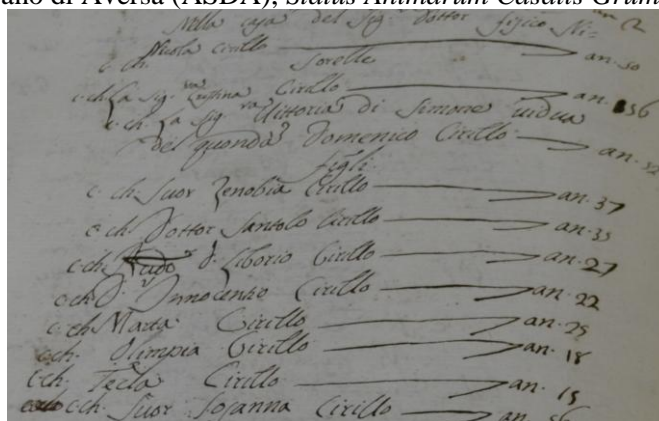 ano di Aversa (ASDA), Status Animarum Casalis Grum
Nella casa del Sig. dottor fisico Ni-
c. ch. Nicola Cirillo an. 50
Sorelle
c. ch. La Sig.ra Cirillo an. 56
c. ch. La Sig.ra Vittoria di Simone vidua
del quondā Domenico Cirillo an. 52
Figli
c. ch. Suor Zenobia Cirillo an. 37
c. ch. Dottor Santolo Cirillo an. 35
c. ch. D. Liborio Cirillo an. 27
c. ch. D. Innocenzo Cirillo an. 22
c. ch. Marta Cirillo an. 25
c. ch. Olimpia Cirillo an. 18
c. ch. Tecla Cirillo an. 15
c. ch. Suor Cirillo an. 56